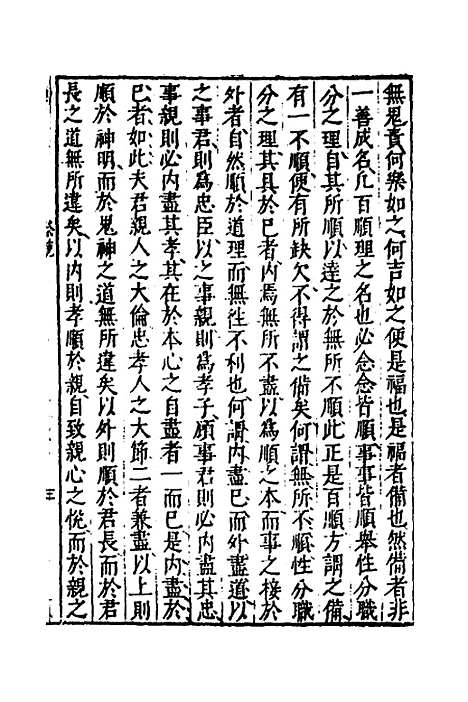 無鬼責何樂如之何吉如之便是福也是福者備也然備者非
一善成名凡百順理之名也必念念皆順事事皆順舉性分職
分之理自其所順以達之於無所不順此正是百順方謂之備
有一不順便有所缺欠不得謂之備矣何謂無所不順性分職
分之理其具於己者內焉無所不盡以爲順之本而事之接於
外者自然順於道理而無往不利也何謂內盡已而外盡道以
之事君則爲忠臣以之事親則爲孝子頋事君則必内盡其忠
事親則必内盡其孝其在於本心之自盡者一而已是内盡於
已者如此夫君親人之大倫忠孝人之大節二者兼盡以上則
順於神明而於鬼神之道無所違矣以外則順於君長而於君
長之道無所違矣以内則孝順於親自致親心之悅而於親之
祭統
三